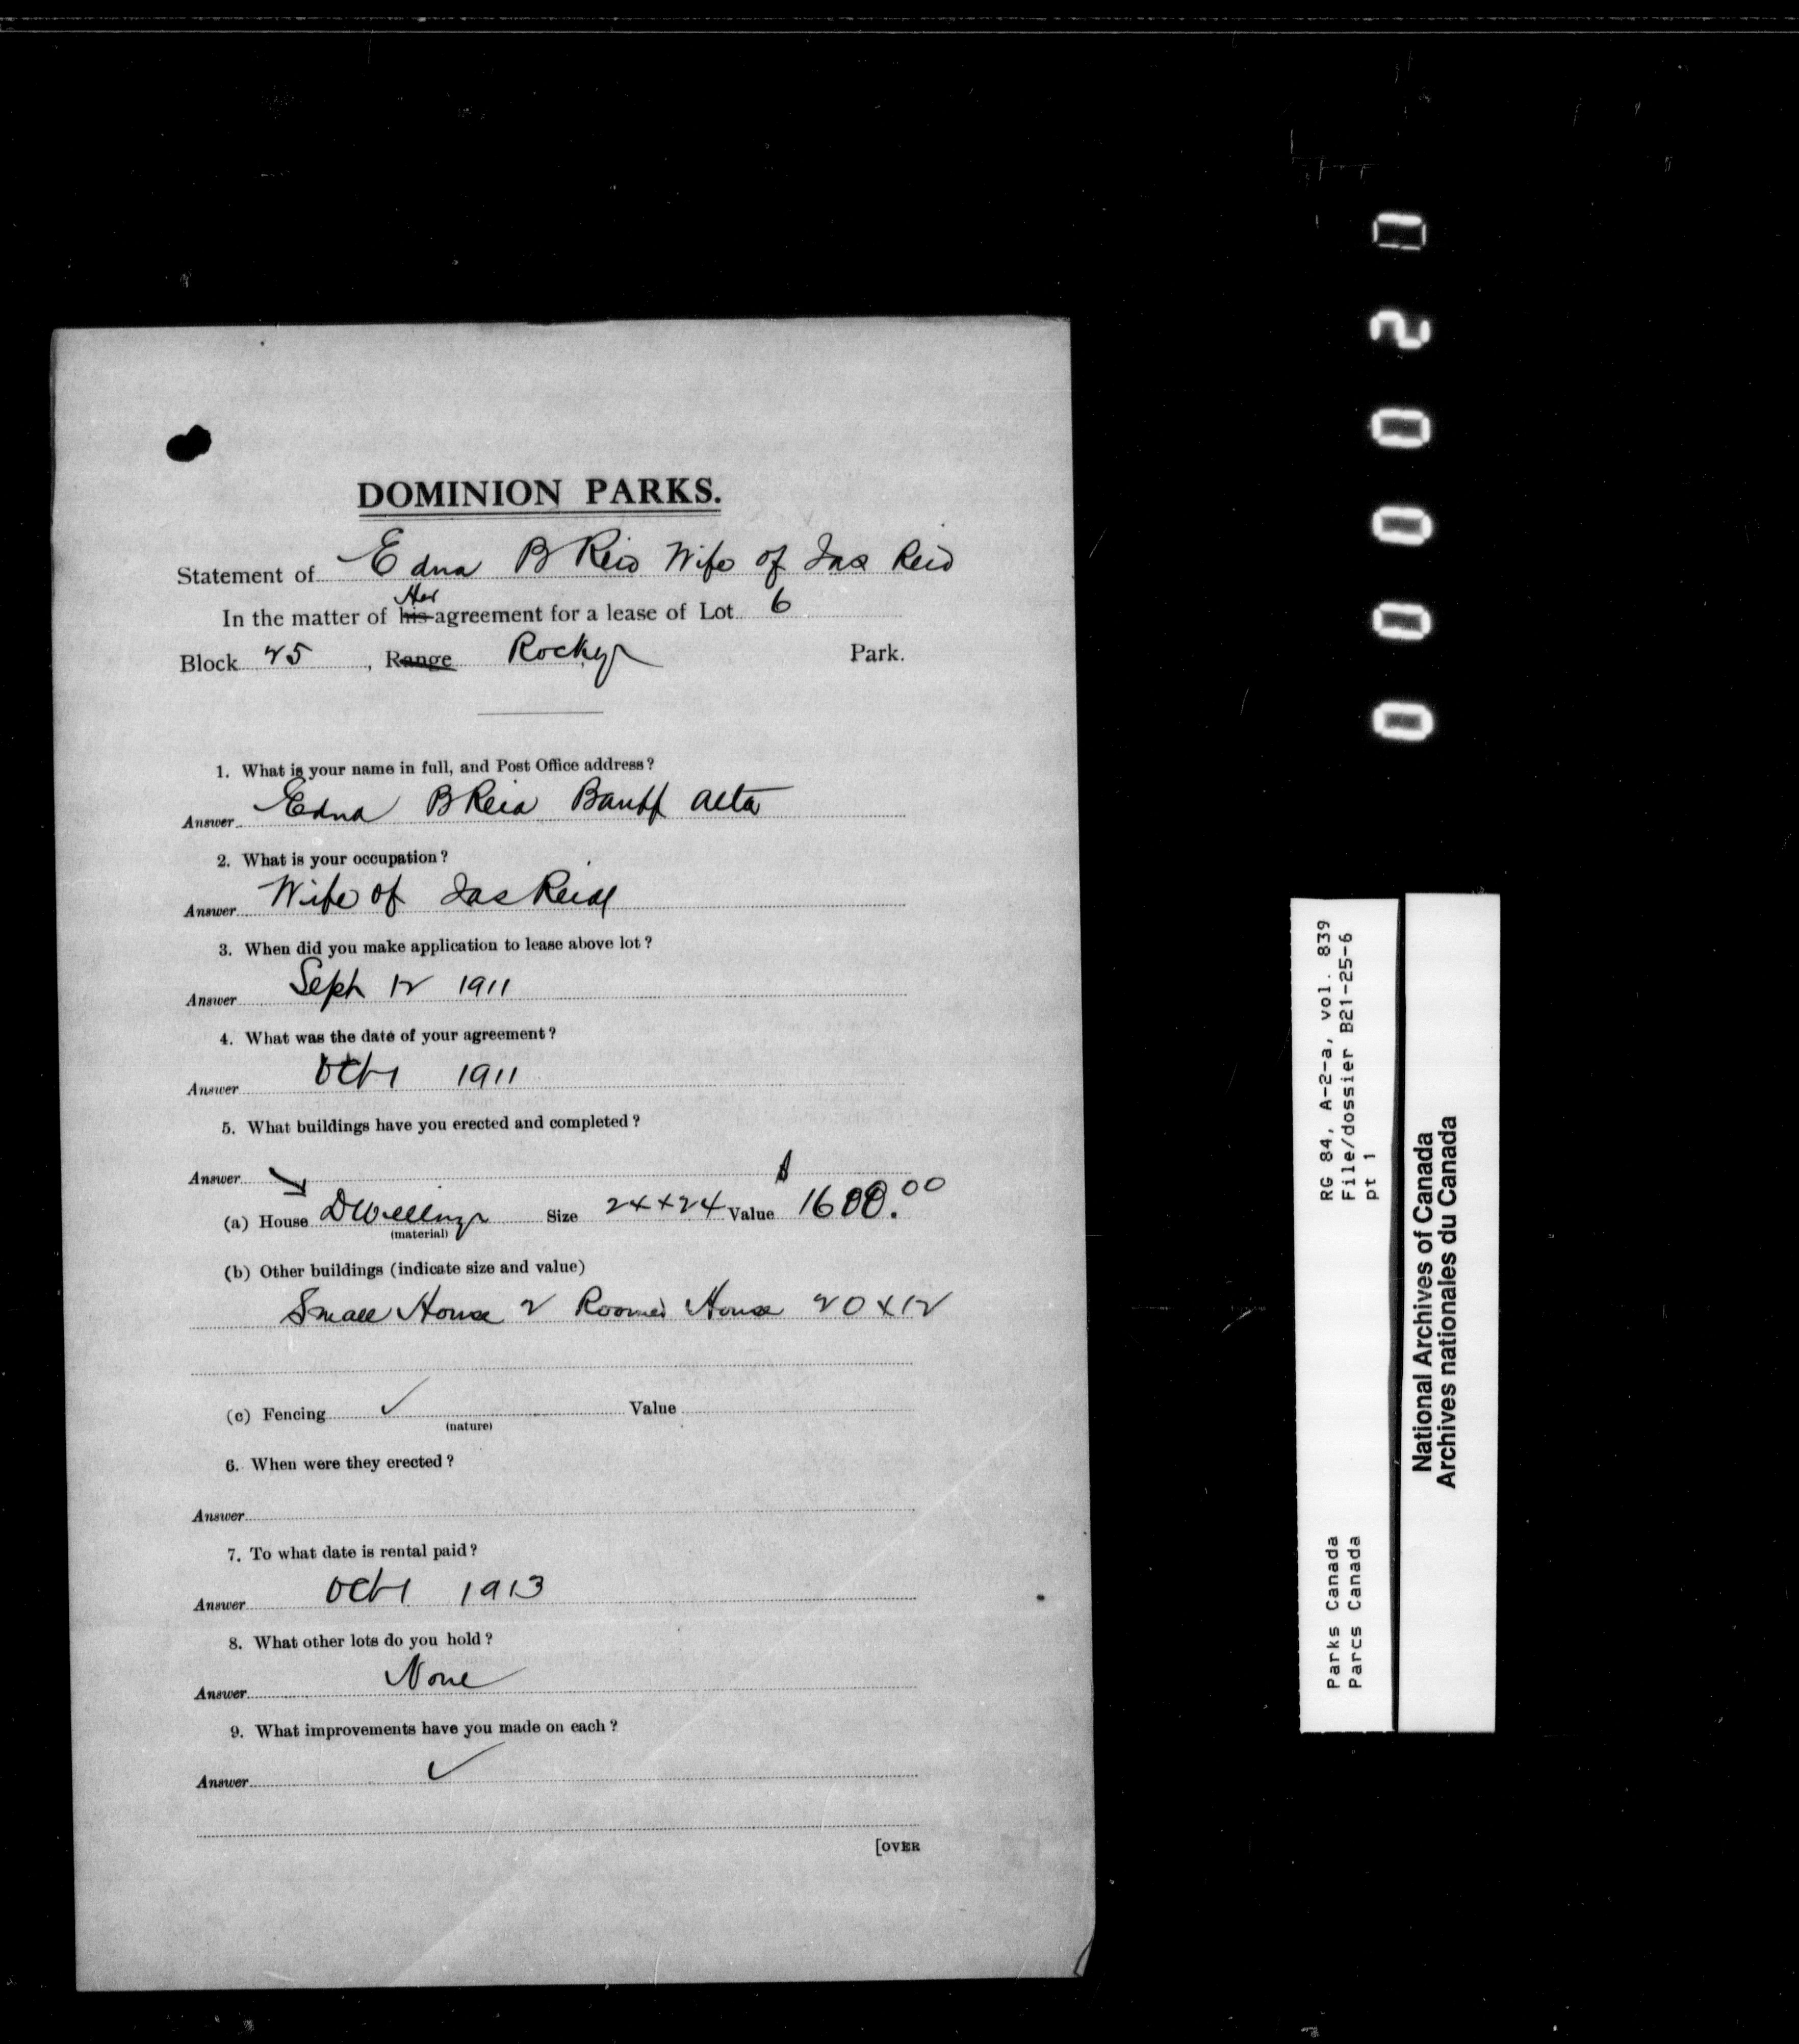 DOMINION PARKS.
Statement of Edna B Reid Wife of Jas Reid
Her
In the matter of his agreement for a lease of Lot 6
Block 25, Range Rocky Park.
1. What is your name in full, and Post Office address?
Answer Edna B Reid Banff Alta
2. What is your occupation?
Answer Wife of Jas Reid
3. When did you make application to lease above lot?
Answer Sept 12 1911
4. What was the date of your agreement?
Answer Oct 1 1911
5. What buildings have you erected and completed?
Answer
(a) House Dwelling Size 24x24 Value $1600.00
(material)
(b) Other buildings (indicate size and value)
Small House 2 Roomed House 20x12
(c) Fencing ✓ Value
(nature)
6. When were they erected?
Answer
7. To what date is rental paid?
Answer Oct 1 1913
8. What other lots do you hold?
Answer None
9. What improvements have you made on each?
Answer ✓
[OVER
000020
RG 84, A-2-a, vol. 839
File/dossier B21-25-6
pt 1
Parks Canada
Parcs Canada
National Archives of Canada
Archives nationales du Canada